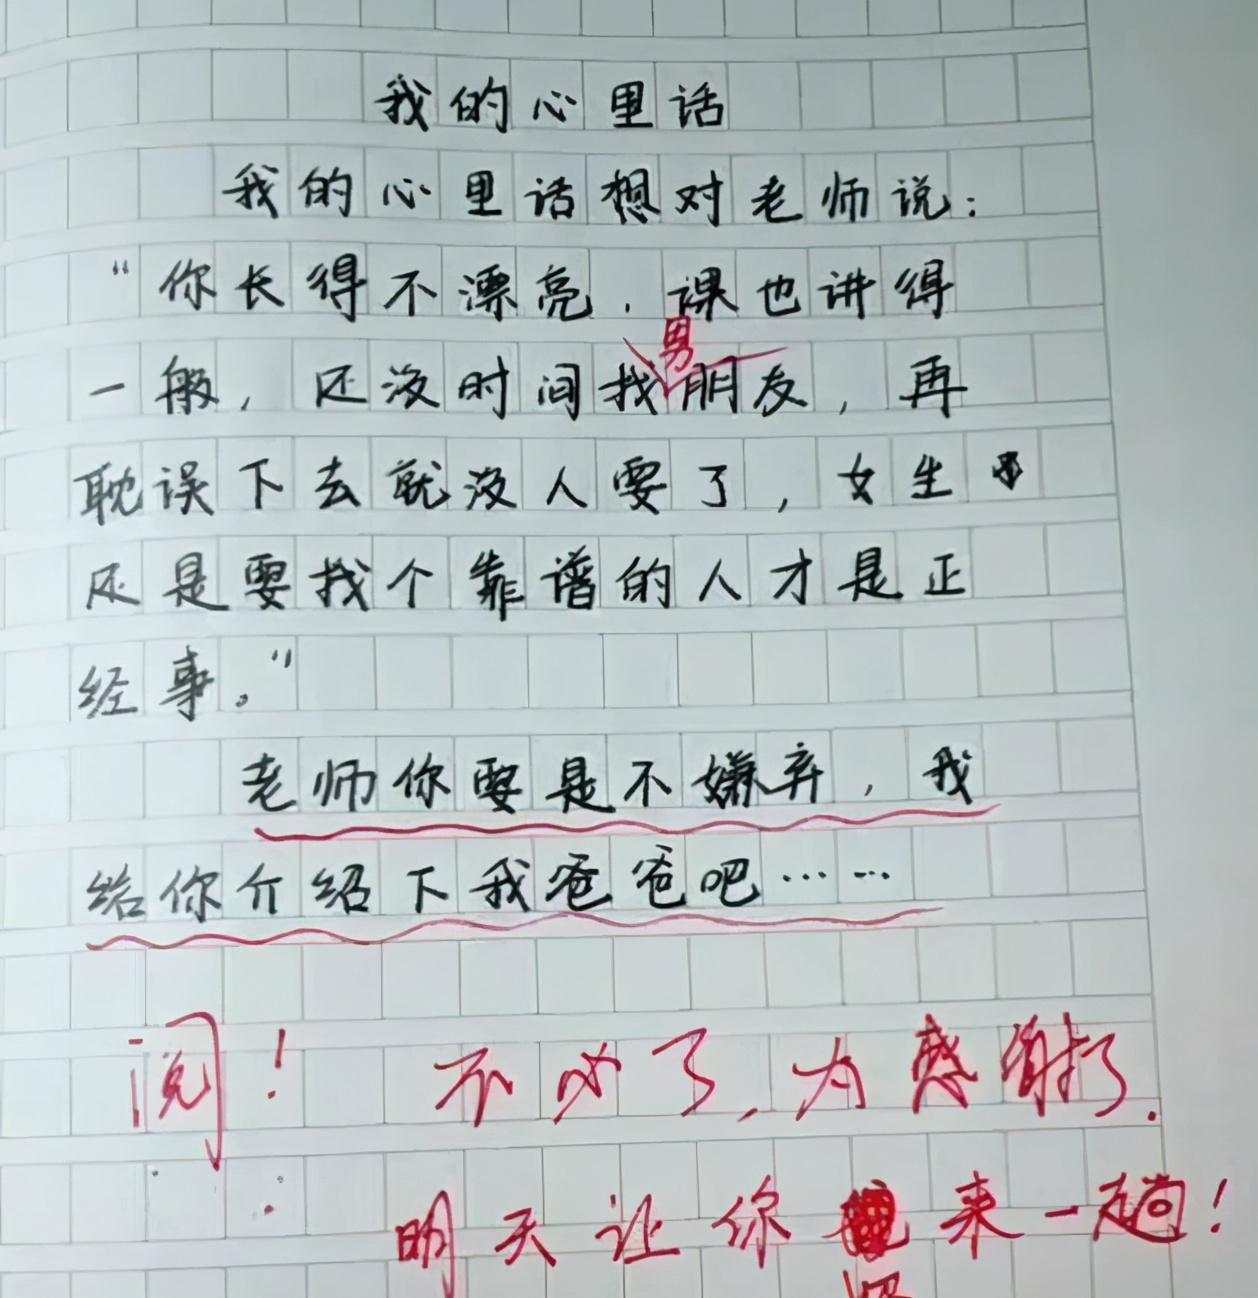 我的心里话
我的心里话想对老师说：
“你长得不漂亮，课也讲得
一般，还没时间找男朋友，再
耽误下去就没人要了，女生
还是要找个靠谱的人才是正
经事。”
老师你要是不嫌弃，我
给你介绍下我爸爸吧……
阅！ 不必了，太感谢了.
明天让你 来一趟！